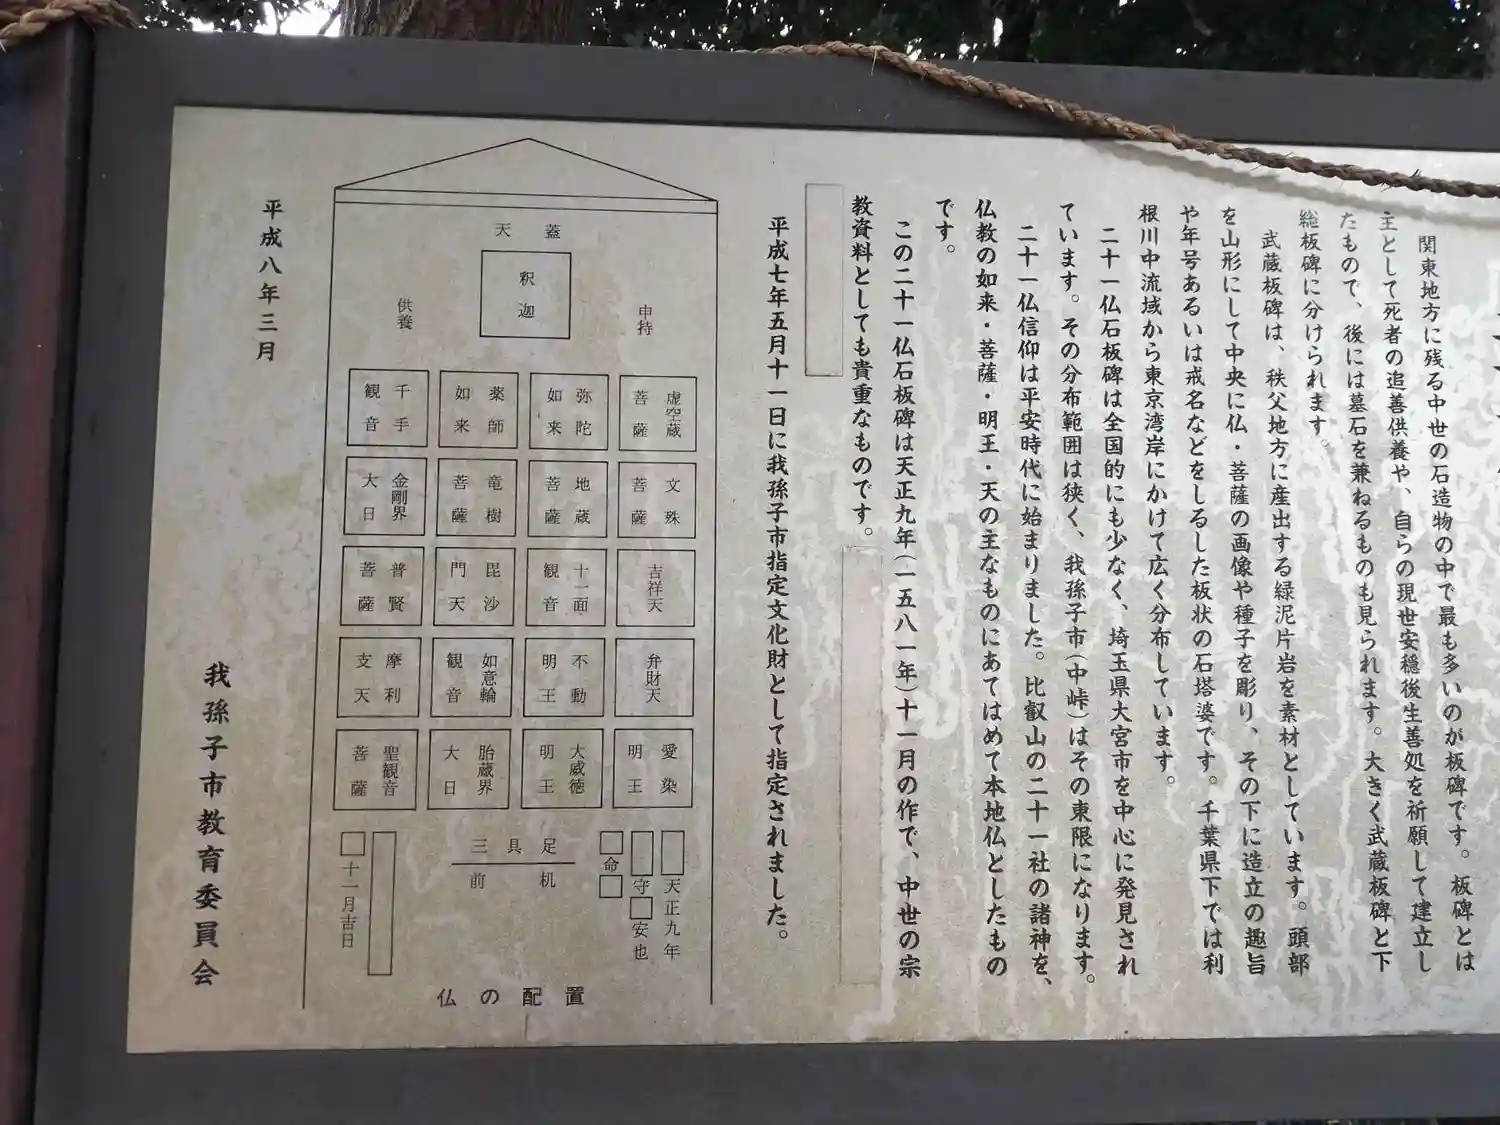 関東地方に残る中世の石造物の中で最も多いのが板碑です。板碑とは
主として死者の追善供養や、自らの現世安穏後生善処を祈願して建立し
たもので、後には墓石を兼ねるものも見られます。大きく武蔵板碑と下
総板碑に分けられます。
武蔵板碑は、秩父地方に産出する緑泥片岩を素材としています。頭部
を山形にして中央に仏・菩薩の画像や種子を彫り、その下に造立の趣旨
や年号あるいは戒名などをしるした板状の石塔婆です。千葉県下では利
根川中流域から東京湾岸にかけて広く分布しています。
二十一仏石板碑は全国的にも少なく、埼玉県大宮市を中心に発見され
ています。その分布範囲は狭く、我孫子市(中峠)はその東限になります。
二十一仏信仰は平安時代に始まりました。比叡山の二十一社の諸神を、
仏教の如来・菩薩・明王・天の主なものにあてはめて本地仏としたもの
です。
この二十一仏石板碑は天正九年(一五八一年)十一月の作で、中世の宗
教資料としても貴重なものです。
平成七年五月十一日に我孫子市指定文化財として指定されました。
天蓋
釈迦
申待
供養
虚空蔵
菩薩
弥陀
如来
薬師
如来
千手
観音
文殊
菩薩
地蔵
菩薩
竜樹
菩薩
金剛界
大日
吉祥天
十一面
観音
毘沙
門天
普賢
菩薩
弁財天
不動
明王
如意輪
観音
摩利
支天
愛染
明王
大威徳
明王
胎蔵界
大日
聖観音
菩薩
天正九年
守□安也
□命□
三具足
前机
□十一月吉日
仏の配置
平成八年三月
我孫子市教育委員会